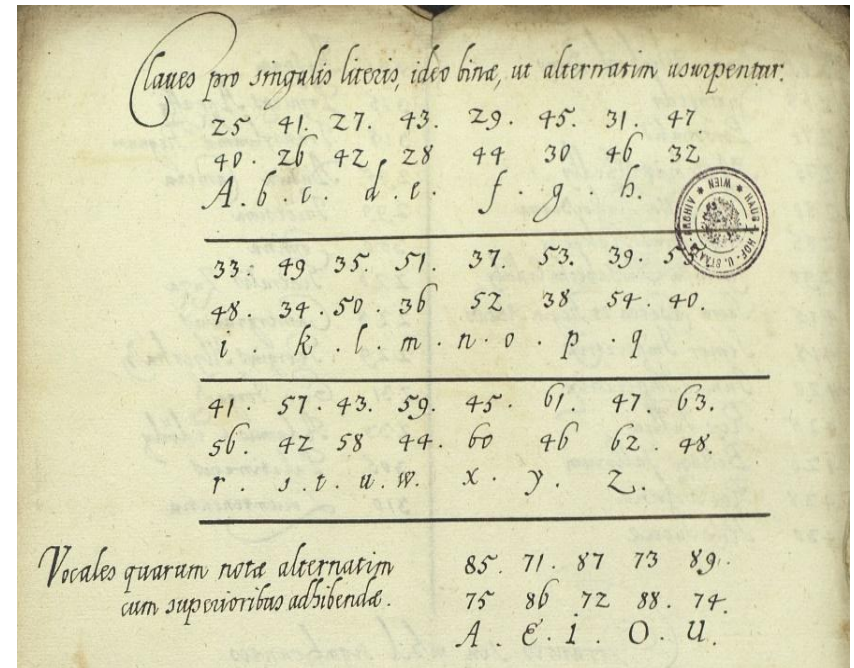 Claves pro singulis literis, ideo binæ, ut alternatim usurpentur.
25 41. 27. 43. 29. 45. 31. 47
40. 26 42. 28 44 30 46 32
A. b. c. d. e. f. g. h.
33. 49 35. 51. 37. 53. 39.
48. 34. 50. 36 52 38 54. 40.
i k. l. m. n. o. p. q
41. 57. 43. 59. 45. 61. 47. 63.
56. 42 58 44. 60 46 62. 48.
r. s. t. u. w. x. y. z.
Vocales quarum notæ alternatim
cum superioribus adhibendæ.
85. 71. 87 73 89.
75 86 72 88. 74.
A. E. i. O. U.
HAUS HOF- U. STAATS ARCHIV WIEN